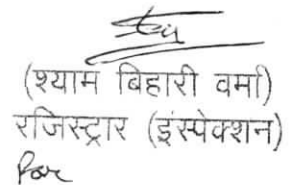 (श्याम बिहारी वर्मा)
रजिस्ट्रार (इंस्पेक्शन)